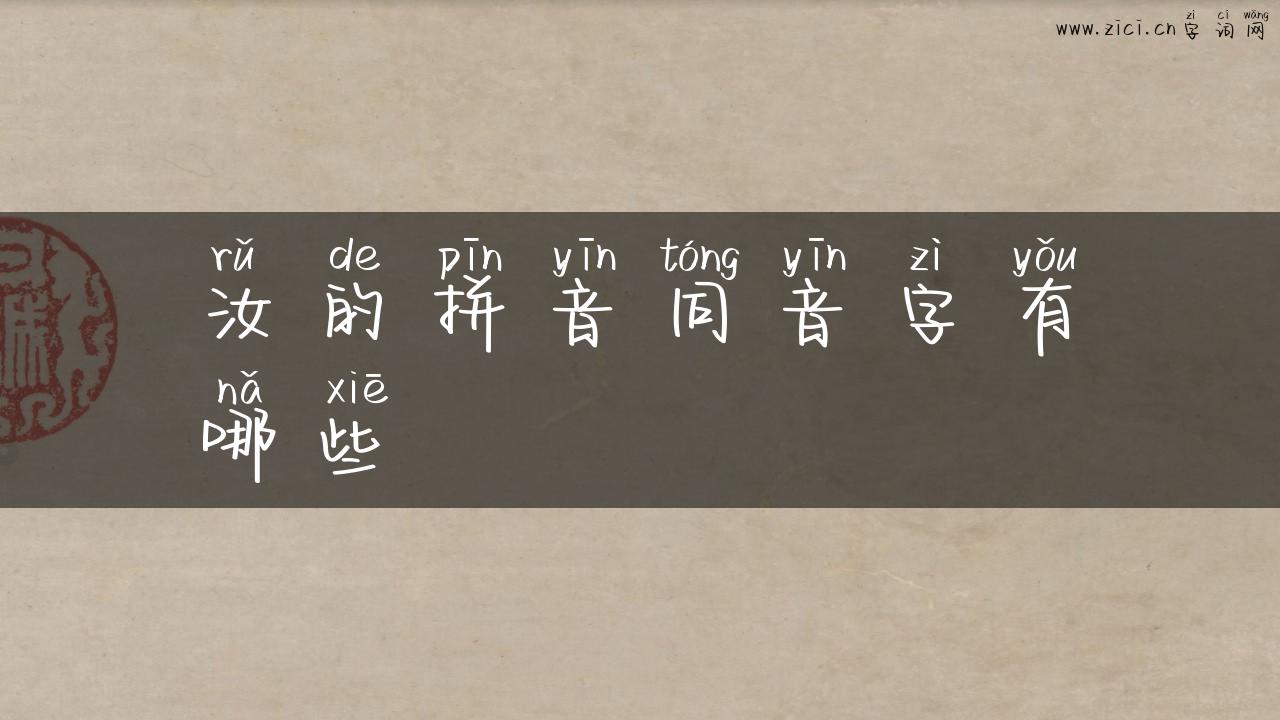 zì cí wǎng
www.zici.cn 字词网
rǔ de pīn yīn tóng yīn zì yǒu
汝的拼音同音字有
nǎ xiē
哪些